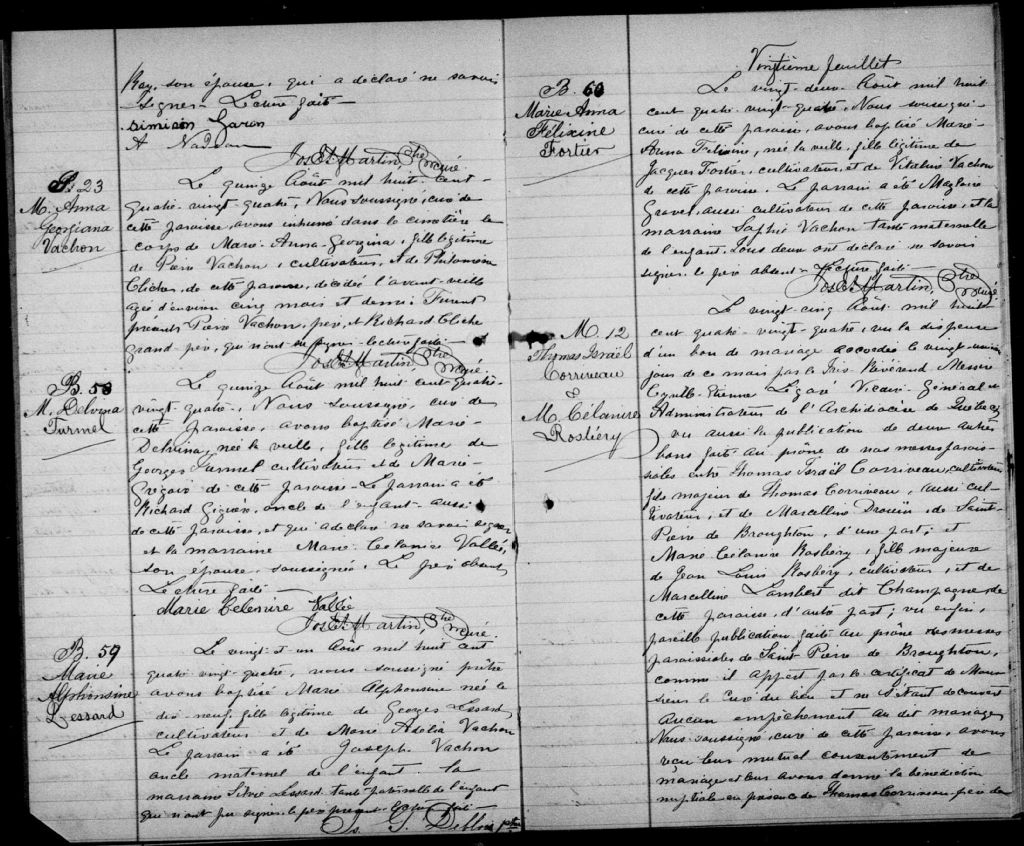 Roy, son épouse, qui a declaré ne savoir
signer. Lecture faite
Simieon Garon
A Nadeau
Jos. Et. Martin, Ptre curé
S. 23
M. Anna
Georgiana
Vachon
Le quinze Août mil huit cent
quatre vingt quatre, Nous soussigné, curé de
cette paroisse, avons inhumé dans le cimetière le
corps de Marie-Anna-Georgina, fille légitime
de Pierre Vachon, cultivateur, et de Philomène
Cliche, de cette paroisse, décédée l'avant-veille
agée d'environ cinq mois et demi. Furent
presents Pierre Vachon, père, et Richard Cliche
grand-père, qui n'ont su signer. Lecture faite
Jos. Et. Martin, Ptre curé
B. 58
M. Delvina
Turmel
Le quinze Août mil huit cent quatre-
vingt quatre, Nous soussigné, curé de
cette paroisse, avons baptisé Marie
Delvina, née la veille, fille légitime de
Georges Turmel cultivateur et de Marie
Grégoire de cette paroisse. Le parrain a été
Richard Giguère, oncle de l'enfant aussi
de cette paroisse, et qui a declaré ne savoir signer
et la marraine Marie Célanire Vallée,
son épouse, soussignée. Le père absent
Lecture faite
Marie Celenire Vallée
Jos. Et. Martin, Ptre curé
B. 59
Marie
Alphonsine
Lessard
Le vingt et un Août mil huit cent
quatre vingt quatre, nous soussigné prêtre
avons baptisé Marie Alphonsine née le
dix neuf, fille légitime de Georges Lessard
cultivateur et de Marie Adelia Vachon
Le parrain a été Joseph Vachon
oncle maternel de l'enfant la
marraine Silvie Lessard tante paternelle de l'enfant
qui n'ont su signer, le père present. Lecture faite
G. Deblois ptre
Vingtième feuillet
B. 60
Marie Anna
Félixine
Fortier
Le vingt-deux Août mil huit
cent quatre-vingt-quatre, Nous soussigné
curé de cette paroisse, avons baptisé Marie
Anna Félixine, née la veille, fille légitime de
Jacques Fortier, cultivateur, et de Vitaline Vachon
de cette paroisse. Le parrain a été Magloire
Gravel, aussi cultivateur de cette paroisse, et la
marraine Sophie Vachon tante maternelle
de l'enfant. Tous deux ont déclaré ne savoir
signer, le père absent. Lecture faite
Jos. Et. Martin, Ptre curé
M. 12
Thomas Israël
Corriveau
&
M. Célanire
Rosbéry
Le vingt-cinq Août mil huit
cent quatre-vingt-quatre, vu la dispense
d'un ban de mariage accordée le vingt-unième
jour de ce mois par le Très Révérend Messire
Cyrille Etienne Légaré Vicaire Général et
Administrateur de l'Archidiocèse de Québec
vu aussi la publication de deux autres
bans faite au prône de nos messes parois-
siales entre Thomas Israël Corriveau, cultivateur
fils majeur de Thomas Corriveau, aussi cul-
tivateur, et de Marcelline Drouin, de Saint-
Pierre de Broughton, d'une part; et
Marie Célanire Rosbery, fille majeure
de Jean Louis Rosbery, cultivateur, et de
Marcelline Lambert dit Champagne de
cette paroisse, d'autre part; vu enfin,
pareille publication faite au prône des messes
paroissiales de Saint Pierre de Broughton,
comme il appert par le certificat de Mon-
sieur le Curé du lieu et ne s'étant découvert
aucun empêchement au dit mariage
Nous soussigné, curé de cette paroisse, avons
reçu leur mutuel consentement de
mariage et leur avons donné la bénédiction
nuptiale en présence de Thomas Corriveau père de